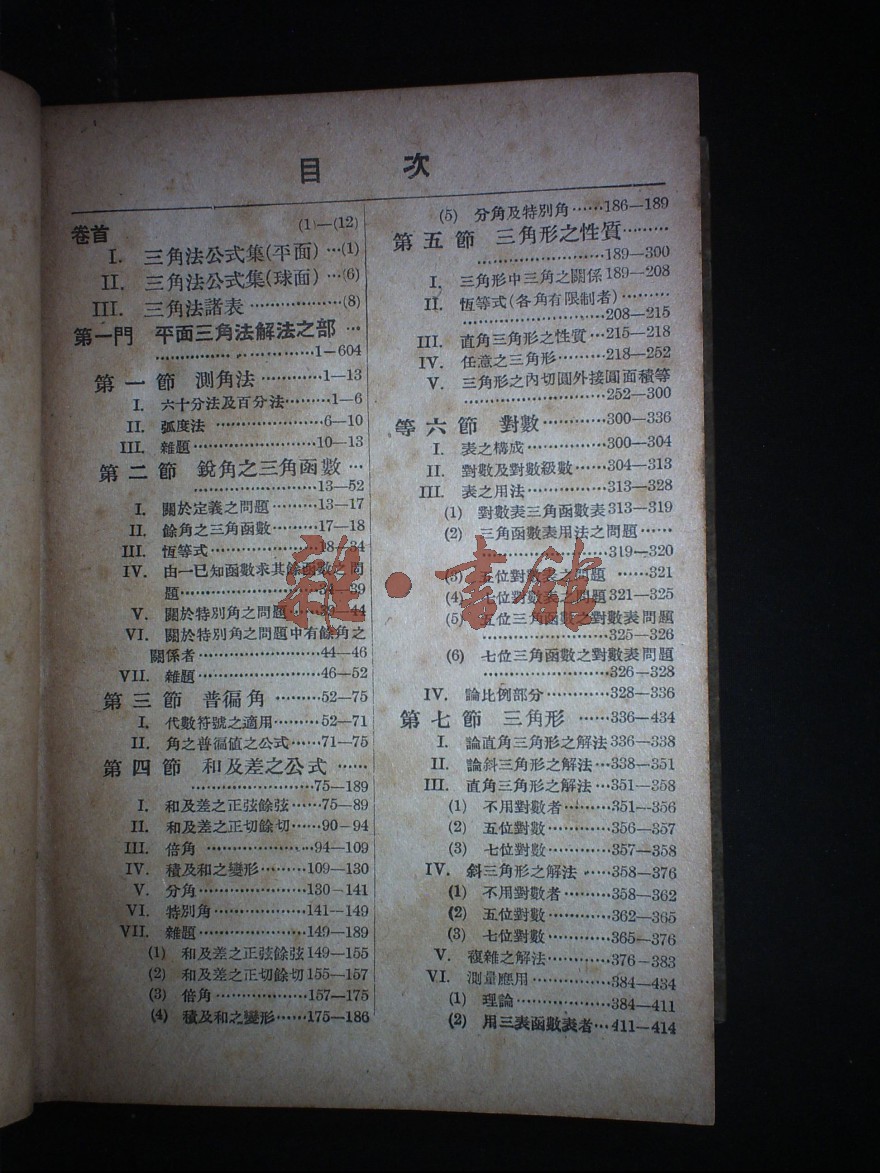 目 次
卷首 (1)—(12)
I. 三角法公式集(平面) …(1)
II. 三角法公式集(球面) …(6)
III. 三角法諸表………………(8)
第一門 平面三角法解法之部 …
……………………1—604
第一節 測角法…………1—13
I. 六十分法及百分法………1—6
II. 弧度法 ………………6—10
III. 雜題…………………10—13
第二節 銳角之三角函數 …
……………………13—52
I. 關於定義之問題………13—17
II. 餘角之三角函數………17—18
III. 恆等式………………18—34
IV. 由一已知函數求其餘函數之問
題……………………34—39
V. 關於特別角之問題……39—44
VI. 關於特別角之問題中有餘角之
關係者…………………44—46
VII. 雜題…………………46—52
第三節 普徧角 ………52—75
I. 代數符號之適用………52—71
II. 角之普徧值之公式……71—75
第四節 和及差之公式 ……
……………………75—189
I. 和及差之正弦餘弦……75—89
II. 和及差之正切餘切……90—94
III. 倍角 ………………94—109
IV. 積及和之變形………109—130
V. 分角…………………130—141
VI. 特別角………………141—149
VII. 雜題………………149—189
(1) 和及差之正弦餘弦149—155
(2) 和及差之正切餘切155—157
(3) 倍角………………157—175
(4) 積及和之變形……175—186
(5) 分角及特別角……186—189
第五節 三角形之性質………
……………………189—300
I. 三角形中三角之關係189—208
II. 恆等式(各角有限制者)………
……………………208—215
III. 直角三角形之性質…215—218
IV. 任意之三角形………218—252
V. 三角形之內切圓外接圓面積等
……………………252—300
等六節 對數…………300—336
I. 表之構成……………300—304
II. 對數及對數級數……304—313
III. 表之用法……………313—328
(1) 對數表三角函數表313—319
(2) 三角函數表用法之問題……
……………………319—320
(3) 五位對數表之問題 ……321
(4) 七位對數表之問題321—325
(5) 五位三角函數之對數表問題
……………………325—326
(6) 七位三角函數之對數表問題
……………………326—328
IV. 論比例部分…………328—336
第七節 三角形 ……336—434
I. 論直角三角形之解法336—338
II. 論斜三角形之解法…338—351
III. 直角三角形之解法…351—358
(1) 不用對數者………351—356
(2) 五位對數…………356—357
(3) 七位對數…………357—358
IV. 斜三角形之解法 ……358—376
(1) 不用對數者………358—362
(2) 五位對數…………362—365
(3) 七位對數…………365—376
V. 複雜之解法…………376—383
VI. 測量應用……………384—434
(1) 理論………………384—411
(2) 用三表函數表者…411—414
雜·書館